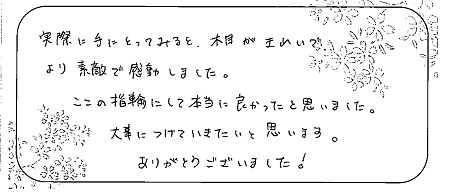 実際に手にとってみると、木目がきれいで
より素敵で感動しました。
ここの指輪にして本当に良かったと思いました。
大事につけていきたいと思います。
ありがとうございました!